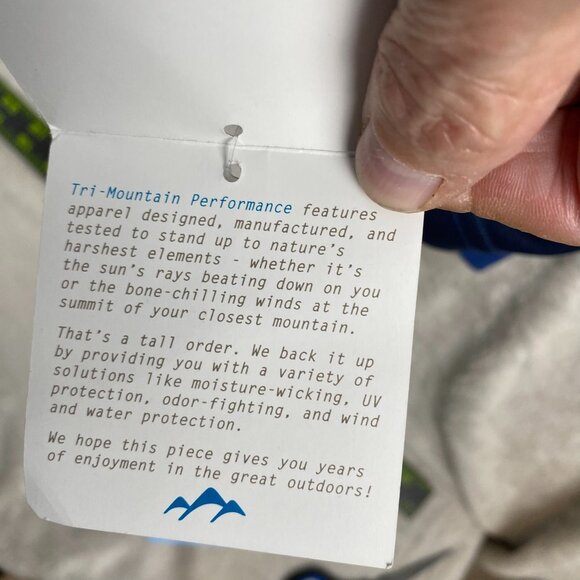 Tri-Mountain Performance features
apparel designed, manufactured, and
tested to stand up to nature's
harshest elements - whether it's
the sun's rays beating down on you
or the bone-chilling winds at the
summit of your closest mountain.
That's a tall order. We back it up
by providing you with a variety of
solutions like moisture-wicking, UV
protection, odor-fighting, and wind
and water protection.
We hope this piece gives you years
of enjoyment in the great outdoors!